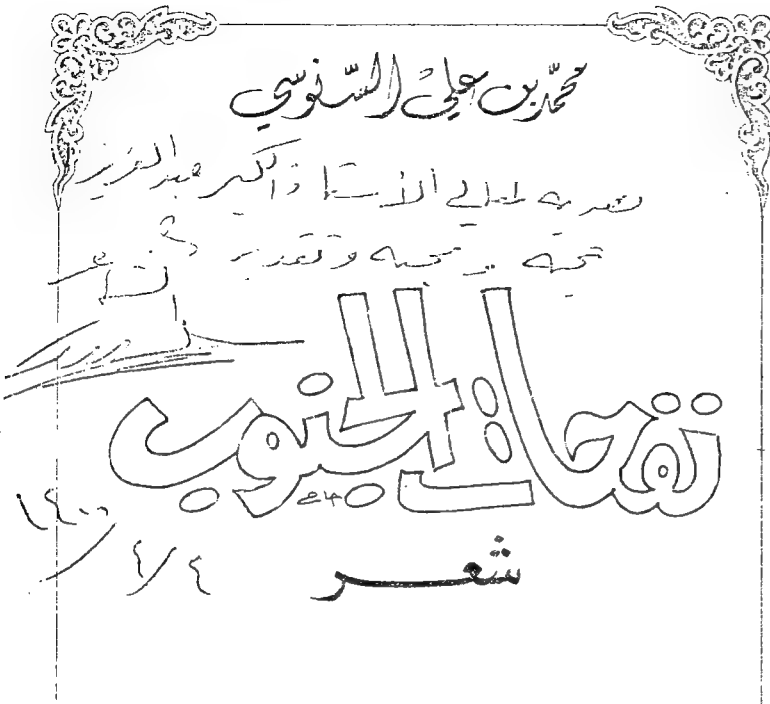 محمّد بن علي السّنوسي
لمعالي الأستاذ الكبير عبد العزيز
تحية ومحبة وتقدير
نفحات الجنوب
شعر
١٤٠٠/٤/٤